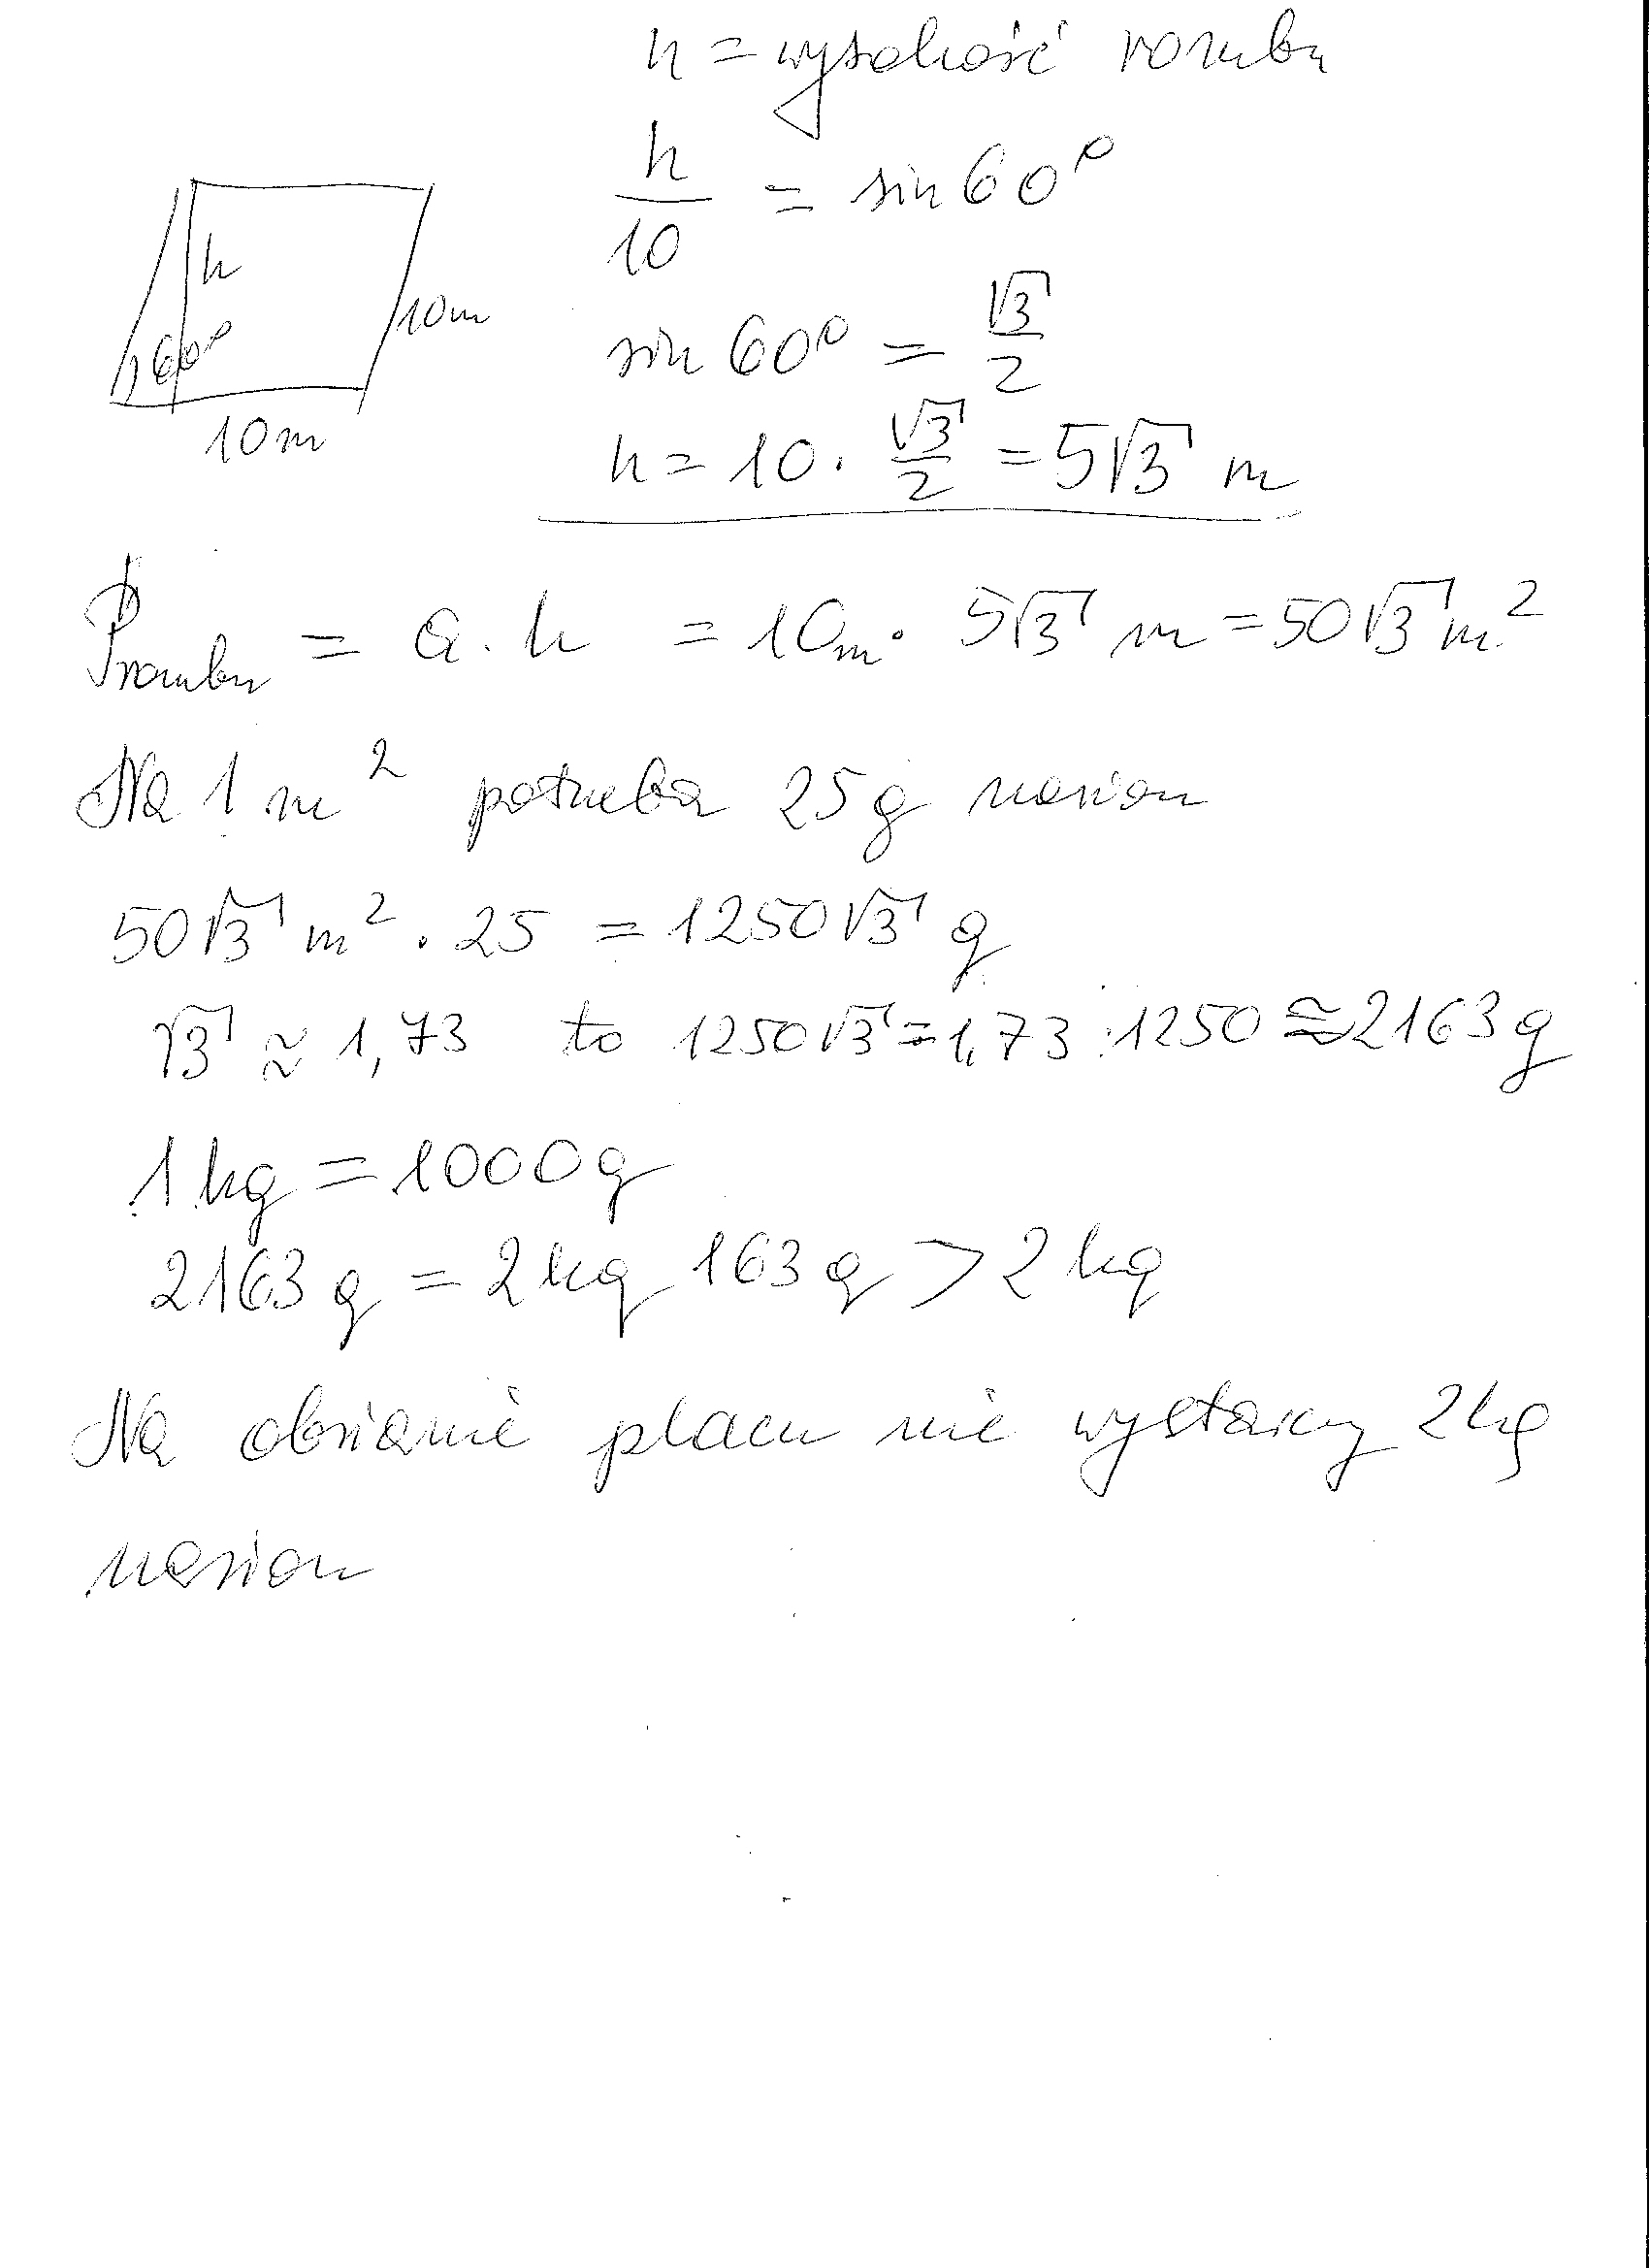 h = wysokość rombu
h/10 = sin 60°
h
60°
10m
10m
sin 60° = √3/2
h = 10 · √3/2 = 5√3 m
P rombu = a · h = 10m · 5√3 m = 50√3 m²
Na 1 m² potrzeba 25g nasion
50√3 m² · 25 = 1250√3 g
√3 ≈ 1,73 to 1250√3 = 1,73 · 1250 ≅ 2163 g
1 kg = 1000g
2163 g = 2 kg 163 g > 2 kg
Na obsianie placu nie wystarczy 2 kg
nasion